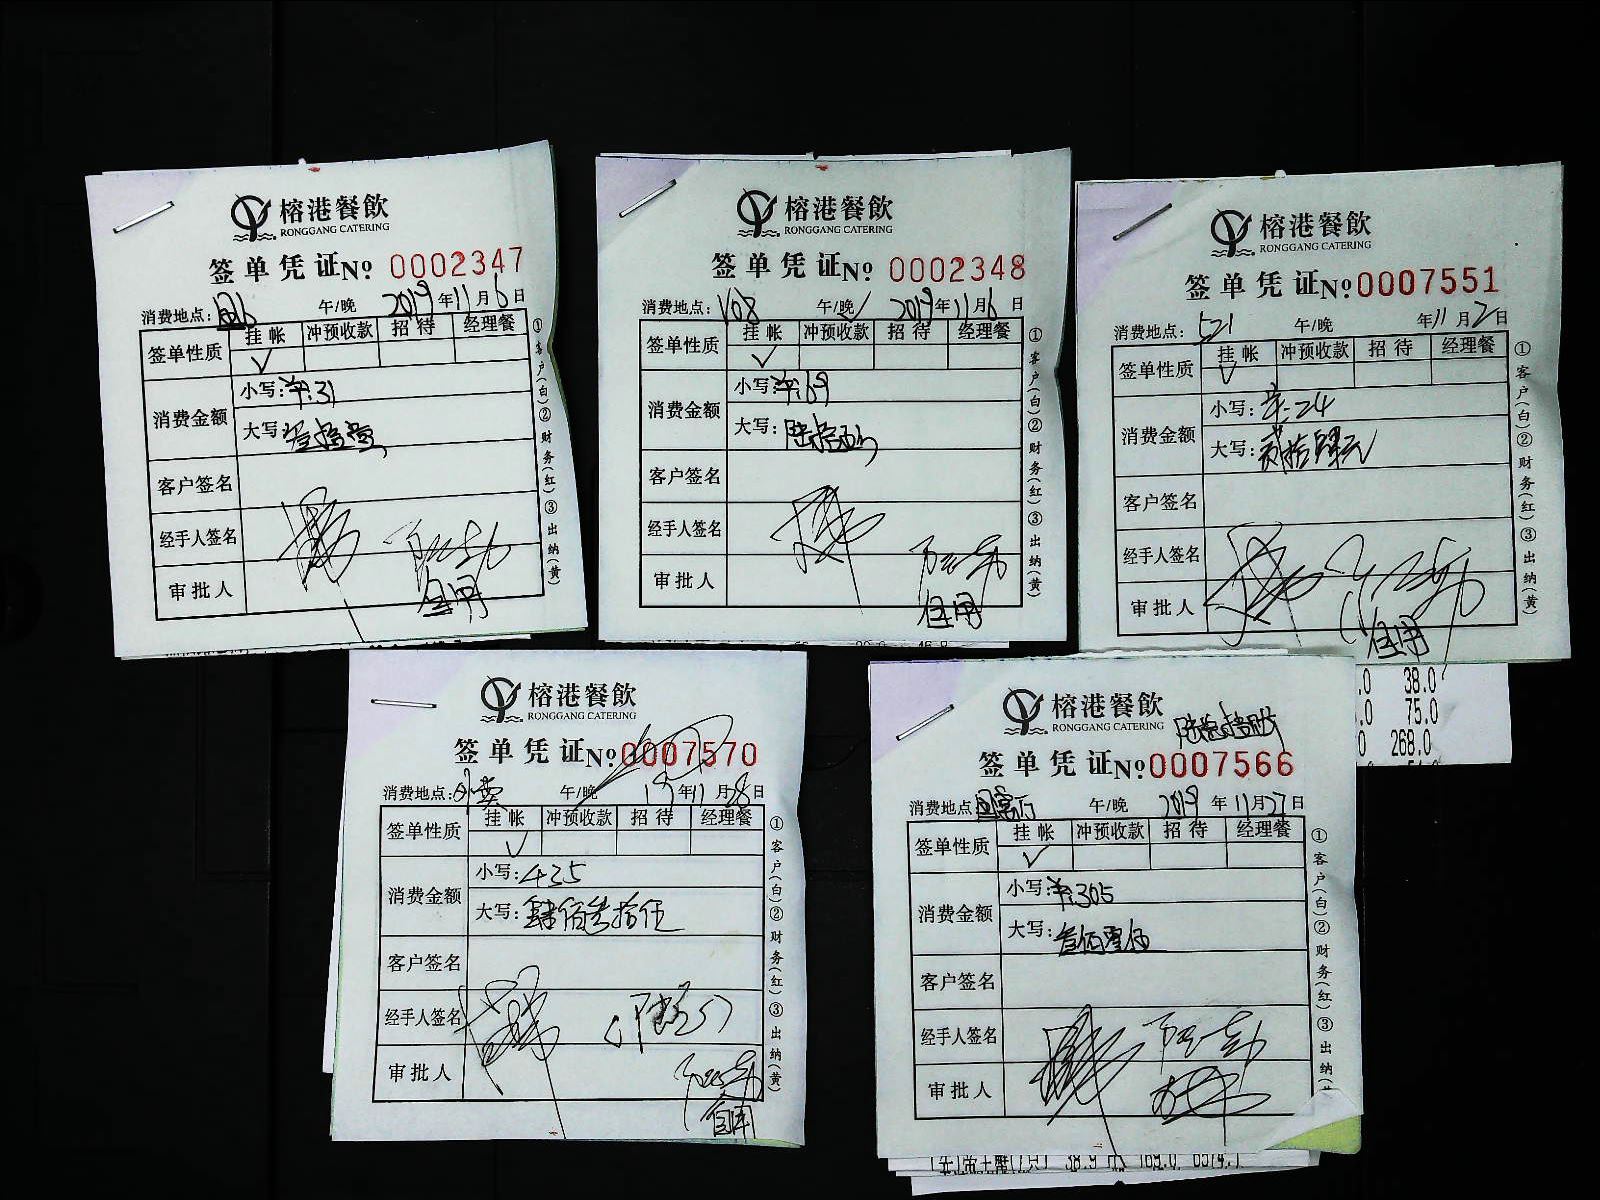 榕港餐飲
RONGGANG CATERING
签单凭证№ 0002347
消费地点: 午/晚 2019年11月6日
签单性质 挂帐 冲预收款 招待 经理餐
✓
消费金额 小写: 31
大写: 叁拾壹
客户签名
经手人签名
审批人 自用
①客户(白)②财务(红)③出纳(黄)
榕港餐飲
RONGGANG CATERING
签单凭证№ 0002348
消费地点: V08 午/晚✓ 2019年11月6日
签单性质 挂帐 冲预收款 招待 经理餐
✓
消费金额 小写: 69
大写: 陆拾玖
客户签名
经手人签名
审批人 自用
①客户(白)②财务(红)③出纳(黄)
榕港餐飲
RONGGANG CATERING
签单凭证№ 0007551
消费地点: 521 午/晚 年11月2日
签单性质 挂帐 冲预收款 招待 经理餐
✓
消费金额 小写: 24
大写: 贰拾肆元
客户签名
经手人签名
审批人 自用
①客户(白)②财务(红)③出纳(黄)
.0 38.0
.0 75.0
0 268.0
榕港餐飲
RONGGANG CATERING
签单凭证№ 0007570
消费地点: 外卖 午/晚 19年11月28日
签单性质 挂帐 冲预收款 招待 经理餐
✓
消费金额 小写: 435
大写: 肆佰叁拾伍
客户签名
经手人签名
审批人
自用
①客户(白)②财务(红)③出纳(黄)
榕港餐飲
RONGGANG CATERING
签单凭证№ 0007566
消费地点: 午/晚 2019年11月27日
签单性质 挂帐 冲预收款 招待 经理餐
✓
消费金额 小写: 305
大写: 叁佰零伍
客户签名
经手人签名
审批人
①客户(白)②财务(红)③出纳(黄